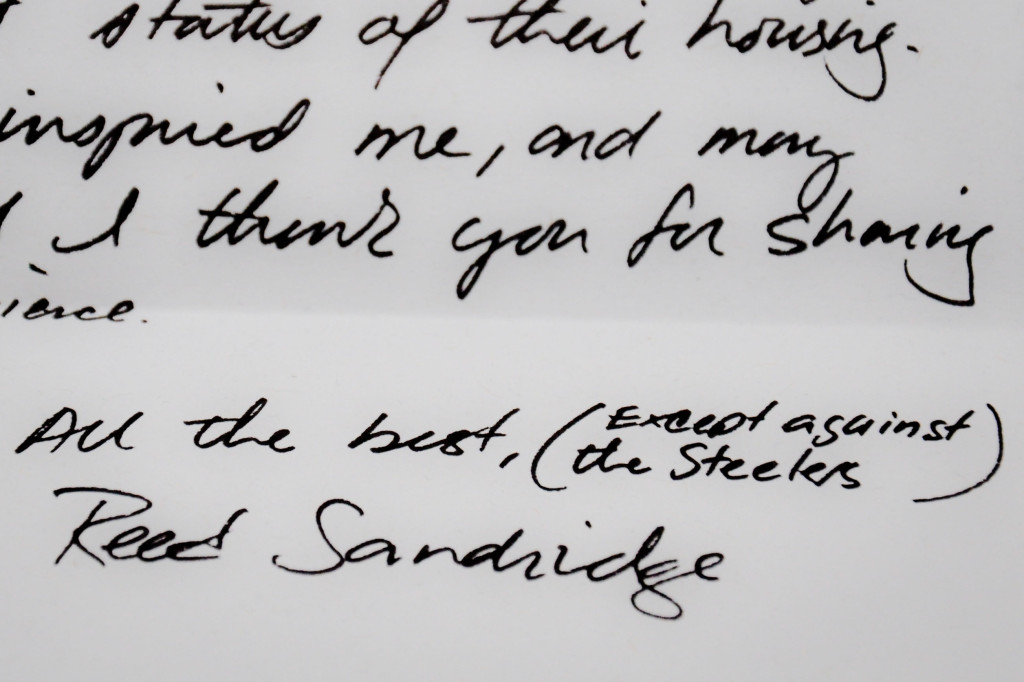 status of their housing.
inspired me, and may
I thank you for sharing
ience.
All the best, (Except against
the Steelers)
Reed Sandridge